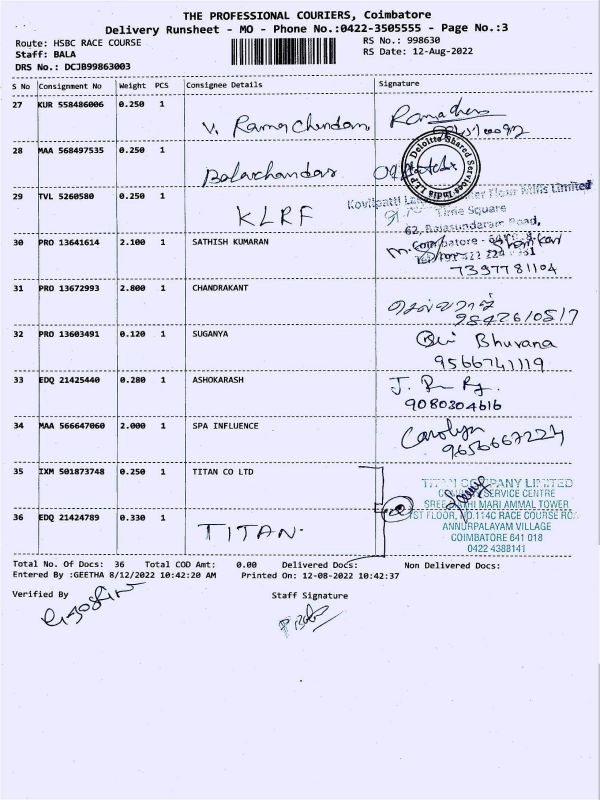 THE PROFESSIONAL COURIERS, Coimbatore
Delivery Runsheet - MO - Phone No.:0422-3505555 - Page No.:3
Route: HSBC RACE COURSE
RS No.: 998630
Staff: BALA
RS Date: 12-Aug-2022
DRS No.: DCJB99863003
S No Consignment No Weight PCS Consignee Details Signature
27 KUR 558486006 0.250 1 V. Ramachandran
28 MAA 568497535 0.250 1 Balachandar
Deloitte Shared Services India LLP
29 TVL 5260580 0.250 1 KLRF
Mills Limited
Time Square
62, Rajasundaram Road,
30 PRO 13641614 2.100 1 SATHISH KUMARAN
Coimbatore -
7397781104
31 PRO 13672993 2.800 1 CHANDRAKANT
9842610517
32 PRO 13603491 0.120 1 SUGANYA Bhuvana
9566741119
33 EDQ 21425440 0.280 1 ASHOKARASH
9080304616
34 MAA 566647060 2.000 1 SPA INFLUENCE Carolyn
9656667224
35 IXM 501873748 0.250 1 TITAN CO LTD
TITAN COMPANY LIMITED
SERVICE CENTRE
MARI AMMAL TOWER
36 EDQ 21424789 0.330 1 TITAN.
1ST FLOOR, NO.114C RACE COURSE ROA
ANNURPALAYAM VILLAGE
COIMBATORE 641 018
0422 4388141
Total No. Of Docs: 36 Total COD Amt: 0.00 Delivered Docs: Non Delivered Docs:
Entered By :GEETHA 8/12/2022 10:42:20 AM Printed On: 12-08-2022 10:42:37
Verified By Staff Signature